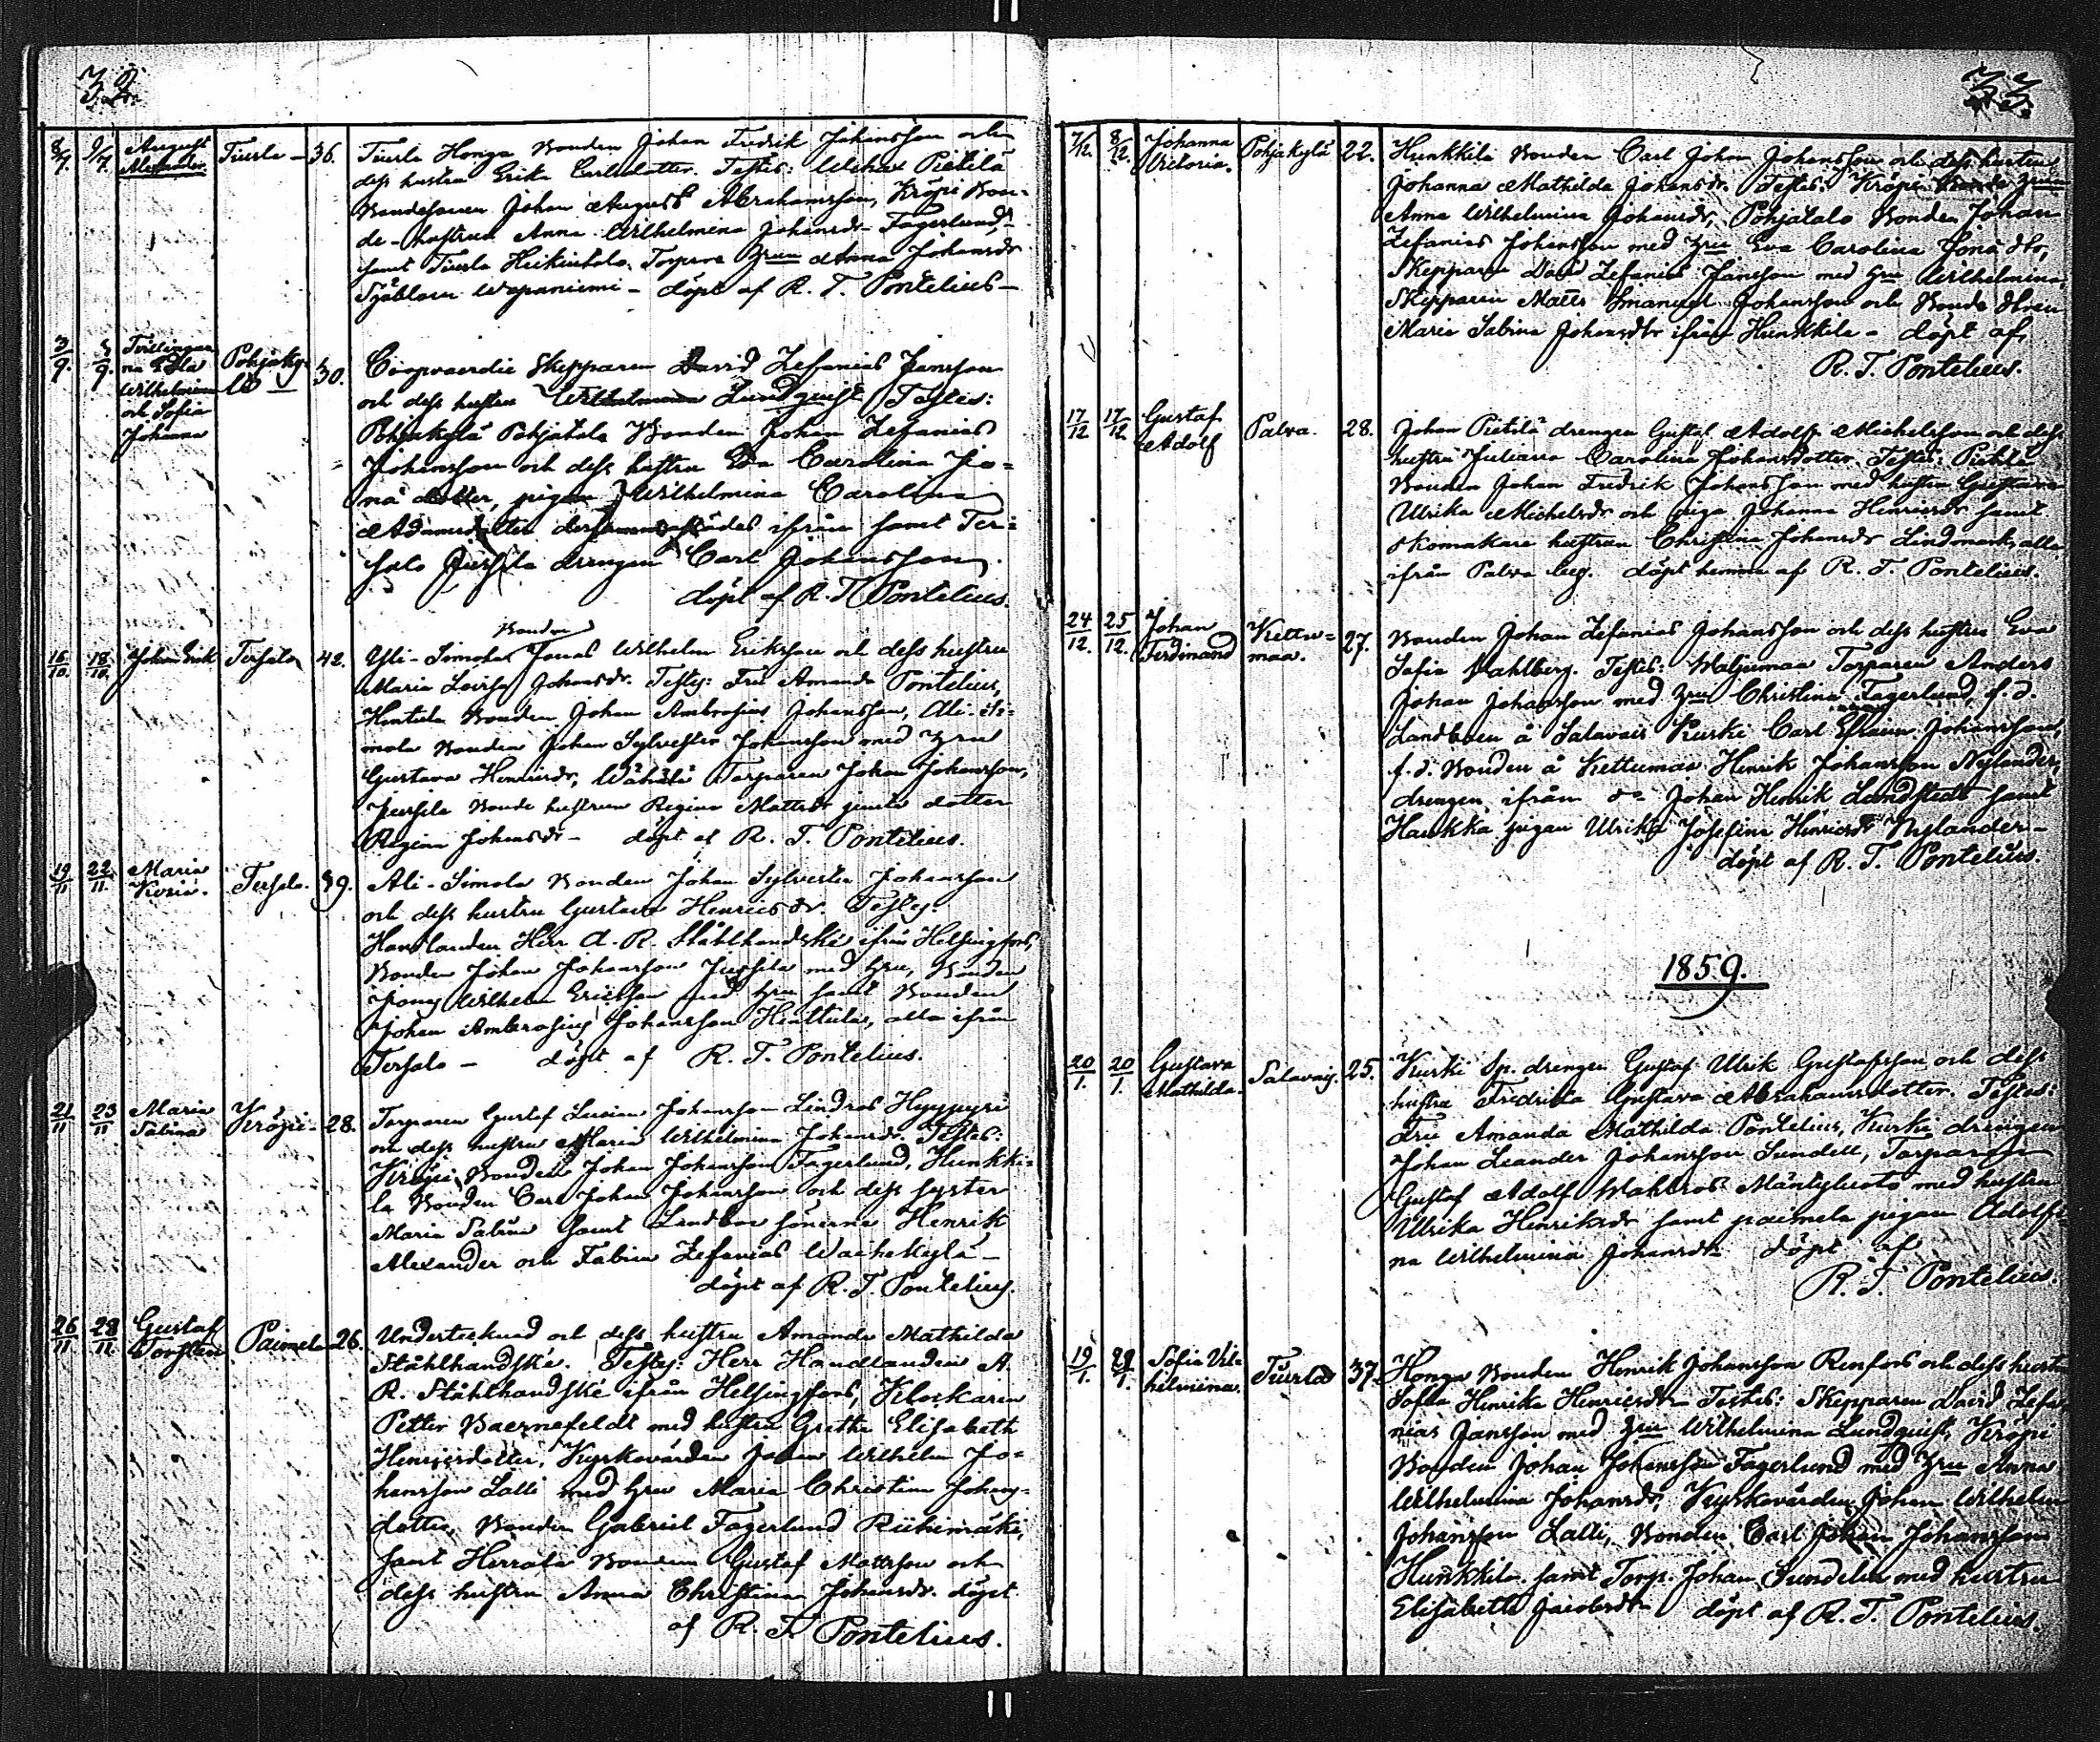 32.
8/7. 9/7. August Alexander Tiurla 36. Tiurla Honga Bonden Johan Fredrik Johansson och
dess hustru Erika Carlsdotter. Testes: Pietilä
Bondesonen Johan August Abrahamsson, Kröpi Bon-
de-hustrun Anna Wilhelmina Johansdr Fagerlund,
samt Tiurla Heikintalo Torpare Hru Anna Johansdr
Sjöblom Wepaniemi - döpt af R. T. Pontelius -
3/9. 5/9. Tvillingar-
na Ulla
Wilhelmina
och Sofia
Johanna
Pohjaky-
lä
30. Coopvaerdie Skepparen David Zefanias Jansson
och dess hustru Wilhelmina Lundquist Testes:
Pohjakylä Pohjatalo Bonden Johan Zefanias
Johansson och dess hustru Eva Carolina Jo-
nä dotter, pigan Wilhelmina Carolina
Adamsdotter dersammastädes ifrån samt Ter-
salo Jussila drengen Carl Johansson.
döpt af R. T. Pontelius.
16/10. 18/10. Johan Erik Tersalo 42. Yli-Simola Bonden Jonas Wilhelm Eriksson och dess hustru
Maria Lovisa Johansdr. Testes: Fru Amanda Pontelius,
Hintula Bonden Johan Ambrosius Johansson, Ali-Si-
mola Bonden Johan Sylvester Johansson med Hru
Gustava Henricsdr, Torparen Johan Johansson,
Jussila Bonde hustrun Regina Mattsdr jemte dotter
Regina Johansdr - döpt af R. T. Pontelius.
19/11 22/11. Maria
Tersalo. 39. Ali-Simola Bonden Johan Sylvester Johansson
och dess hustru Gustava Henricsdr. Testes:
Handlanden Herr A. R. Stålhandské ifrån Helsingfors,
Bonden Johan Johansson Jussila med Hru, Bonden
Jonas Wilhelm Ericsson med Hru samt Bonden
Johan Ambrosius Johansson Hinttula, alla ifrån
Tersalo - döpt af R. T. Pontelius.
21/11 23/11 Maria
Sabina
Kröpi - 28. Torparen Gustaf Johansson Lindros Hyypyrä
och dess hustru Maria Wilhelmina Johansdr. Testes:
Kröpi Bonden Johan Johansson Fagerlund, Hunkki-
la Bonden Carl Johan Johansson och dess syster
Maria Sabina samt Landboe sönerna Henrik
Alexander och Fabian Zefanias Wachakylä -
döpt af R. T. Pontelius.
26/11 28/11. Gustaf
Torsten
Paimela 26. Undertecknad och dess hustru Amanda Mathilda
Stålhandské. Testes: Herr Handlanden A.
R. Stålhandské ifrån Helsingfors, Klockaren
Petter Baernefeldt med hustru Gretha Elisabeth
Henricsdotter, Kyrkovärden Johan Wilhelm Jo-
hansson Lalli med Hru Maria Christina Johans-
dotter, Bonden Gabriel Fagerlund Riihimäki,
samt Herrala Bonden Gustaf Mattsson och
dess hustru Anna Christina Johansdr. döpt
af R. T. Pontelius.
33.
7/12. 8/12. Johanna
Victoria.
Pohjakylä 22. Hunkkila Bonden Carl Johan Johansson och dess hustru
Johanna Mathilda Johansdr. Testes: Kröpi Bonde Hrun
Anna Wilhelmina Johansdr, Pohjatalo Bonden Johan
Zefanias Johansson med Hru Eva Carolina Jonä dtr,
Skepparen David Zefanias Jansson med Hru Wilhelmina,
Skepparen Matts Emanuel Johansson och Bonde dtren
Maria Sabina Johansdtr ifrån Hunkkila - döpt af
R. T. Pontelius.
17/12 17/12. Gustaf
Adolf
Palva. 28. Johan Pietilä drengen Gustaf Adolf Michelsson och dess
hustru Juliana Carolina Johansdotter. Testes: Pietilä
Bonden Johan Fredrik Johansson med hustru Gustava
Ulrika Michelsdr och piga Johanna Henricsdr samt
skomakare hustrun Christina Johansdr Lindmark, alla
ifrån Palva by. döpt hemma af R. T. Pontelius.
24/12. 25/12. Johan
Ferdinand
Kettu-
maa.
27. Bonden Johan Zefanias Johansson och dess hustru Eva
Sofia Wahlberg. Testes: Maljumaa Torparen Anders
Johan Johansson med Hru Christina Fagerlund, f. d.
Landboen å Salavais Kurki Carl Efraim Johansson,
f. d. Bonden å Kettumaa Henrik Johansson Nylander,
drengen ifrån do Johan Henrik Lundstedt samt
Haukka pigan Ulrika Josefina Henricsdr Nylander -
döpt af R. T. Pontelius.
1859.
20/1. 20/1. Gustava
Mathilda.
Salavais. 25. Kurki Sp. drengen Gustaf Ulrik Gustafsson och dess
hustru Fredrika Gustava Abrahamsdotter. Testes:
Fru Amanda Mathilda Pontelius, Kurki drängen
Johan Leander Johansson Sundell, Torparen
Gustaf Adolf Wahlros Mäntyluoto med hustru
Ulrika Henriksdr samt paimela pigan Adolfi-
na Wilhelmina Johansdr döpt af
R. T. Pontelius.
19/1. 29/1. Sofia Vil-
helmina.
Tiurla 37. Honga Bonden Henrik Johansson Renfors och dess hustru
Sofia Henrika Henricsdtr Testes: Skepparen David Zefa-
nias Jansson med Hru Wilhelmina Lundquist, Kröpi
Bonden Johan Johansson Fagerlund med Hru Anna
Wilhelmina Johansdr, Kyrkovärden Johan Wilhelm
Johansson Lalli, Bonden Carl Johan Johansson
Hunkkila samt Torp. Johan Sundelin med hustru
Elisabetta Jacobsdtr döpt af R. T. Pontelius.